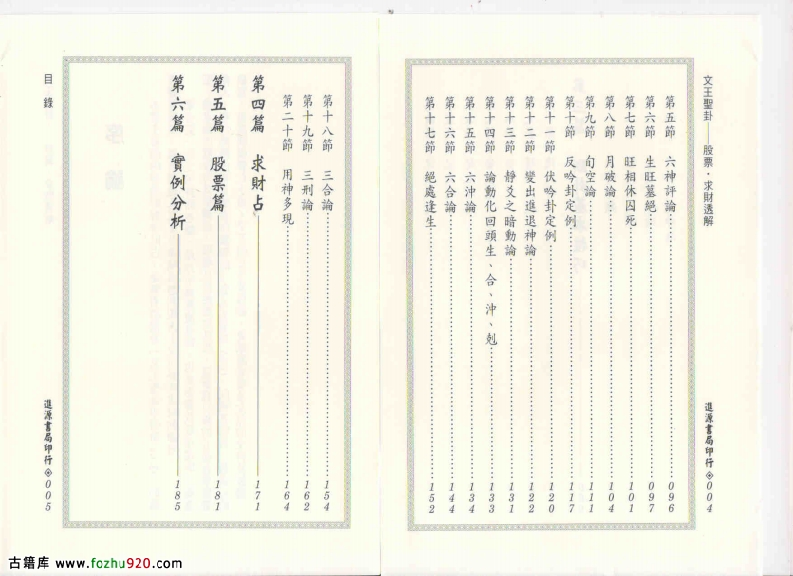 文王聖卦──股票·求財透解
第五節 六神評論 096
第六節 生旺墓絕 097
第七節 旺相休囚死 101
第八節 月破論 104
第九節 旬空論 111
第十節 反吟卦定例 117
第十一節 伏吟卦定例 120
第十二節 變出進退神論 122
第十三節 靜爻之暗動論 131
第十四節 論動化回頭生、合、沖、剋 133
第十五節 六沖論 144
第十六節 六合論 144
第十七節 絕處逢生 152
進源書局印行◈004
第十八節 三合論 154
第十九節 三刑論 162
第二十節 用神多現 164
第四篇 求財占 171
第五篇 股票篇 181
第六篇 實例分析 185
目錄
進源書局印行◈005
古籍库 www.fozhu920.com